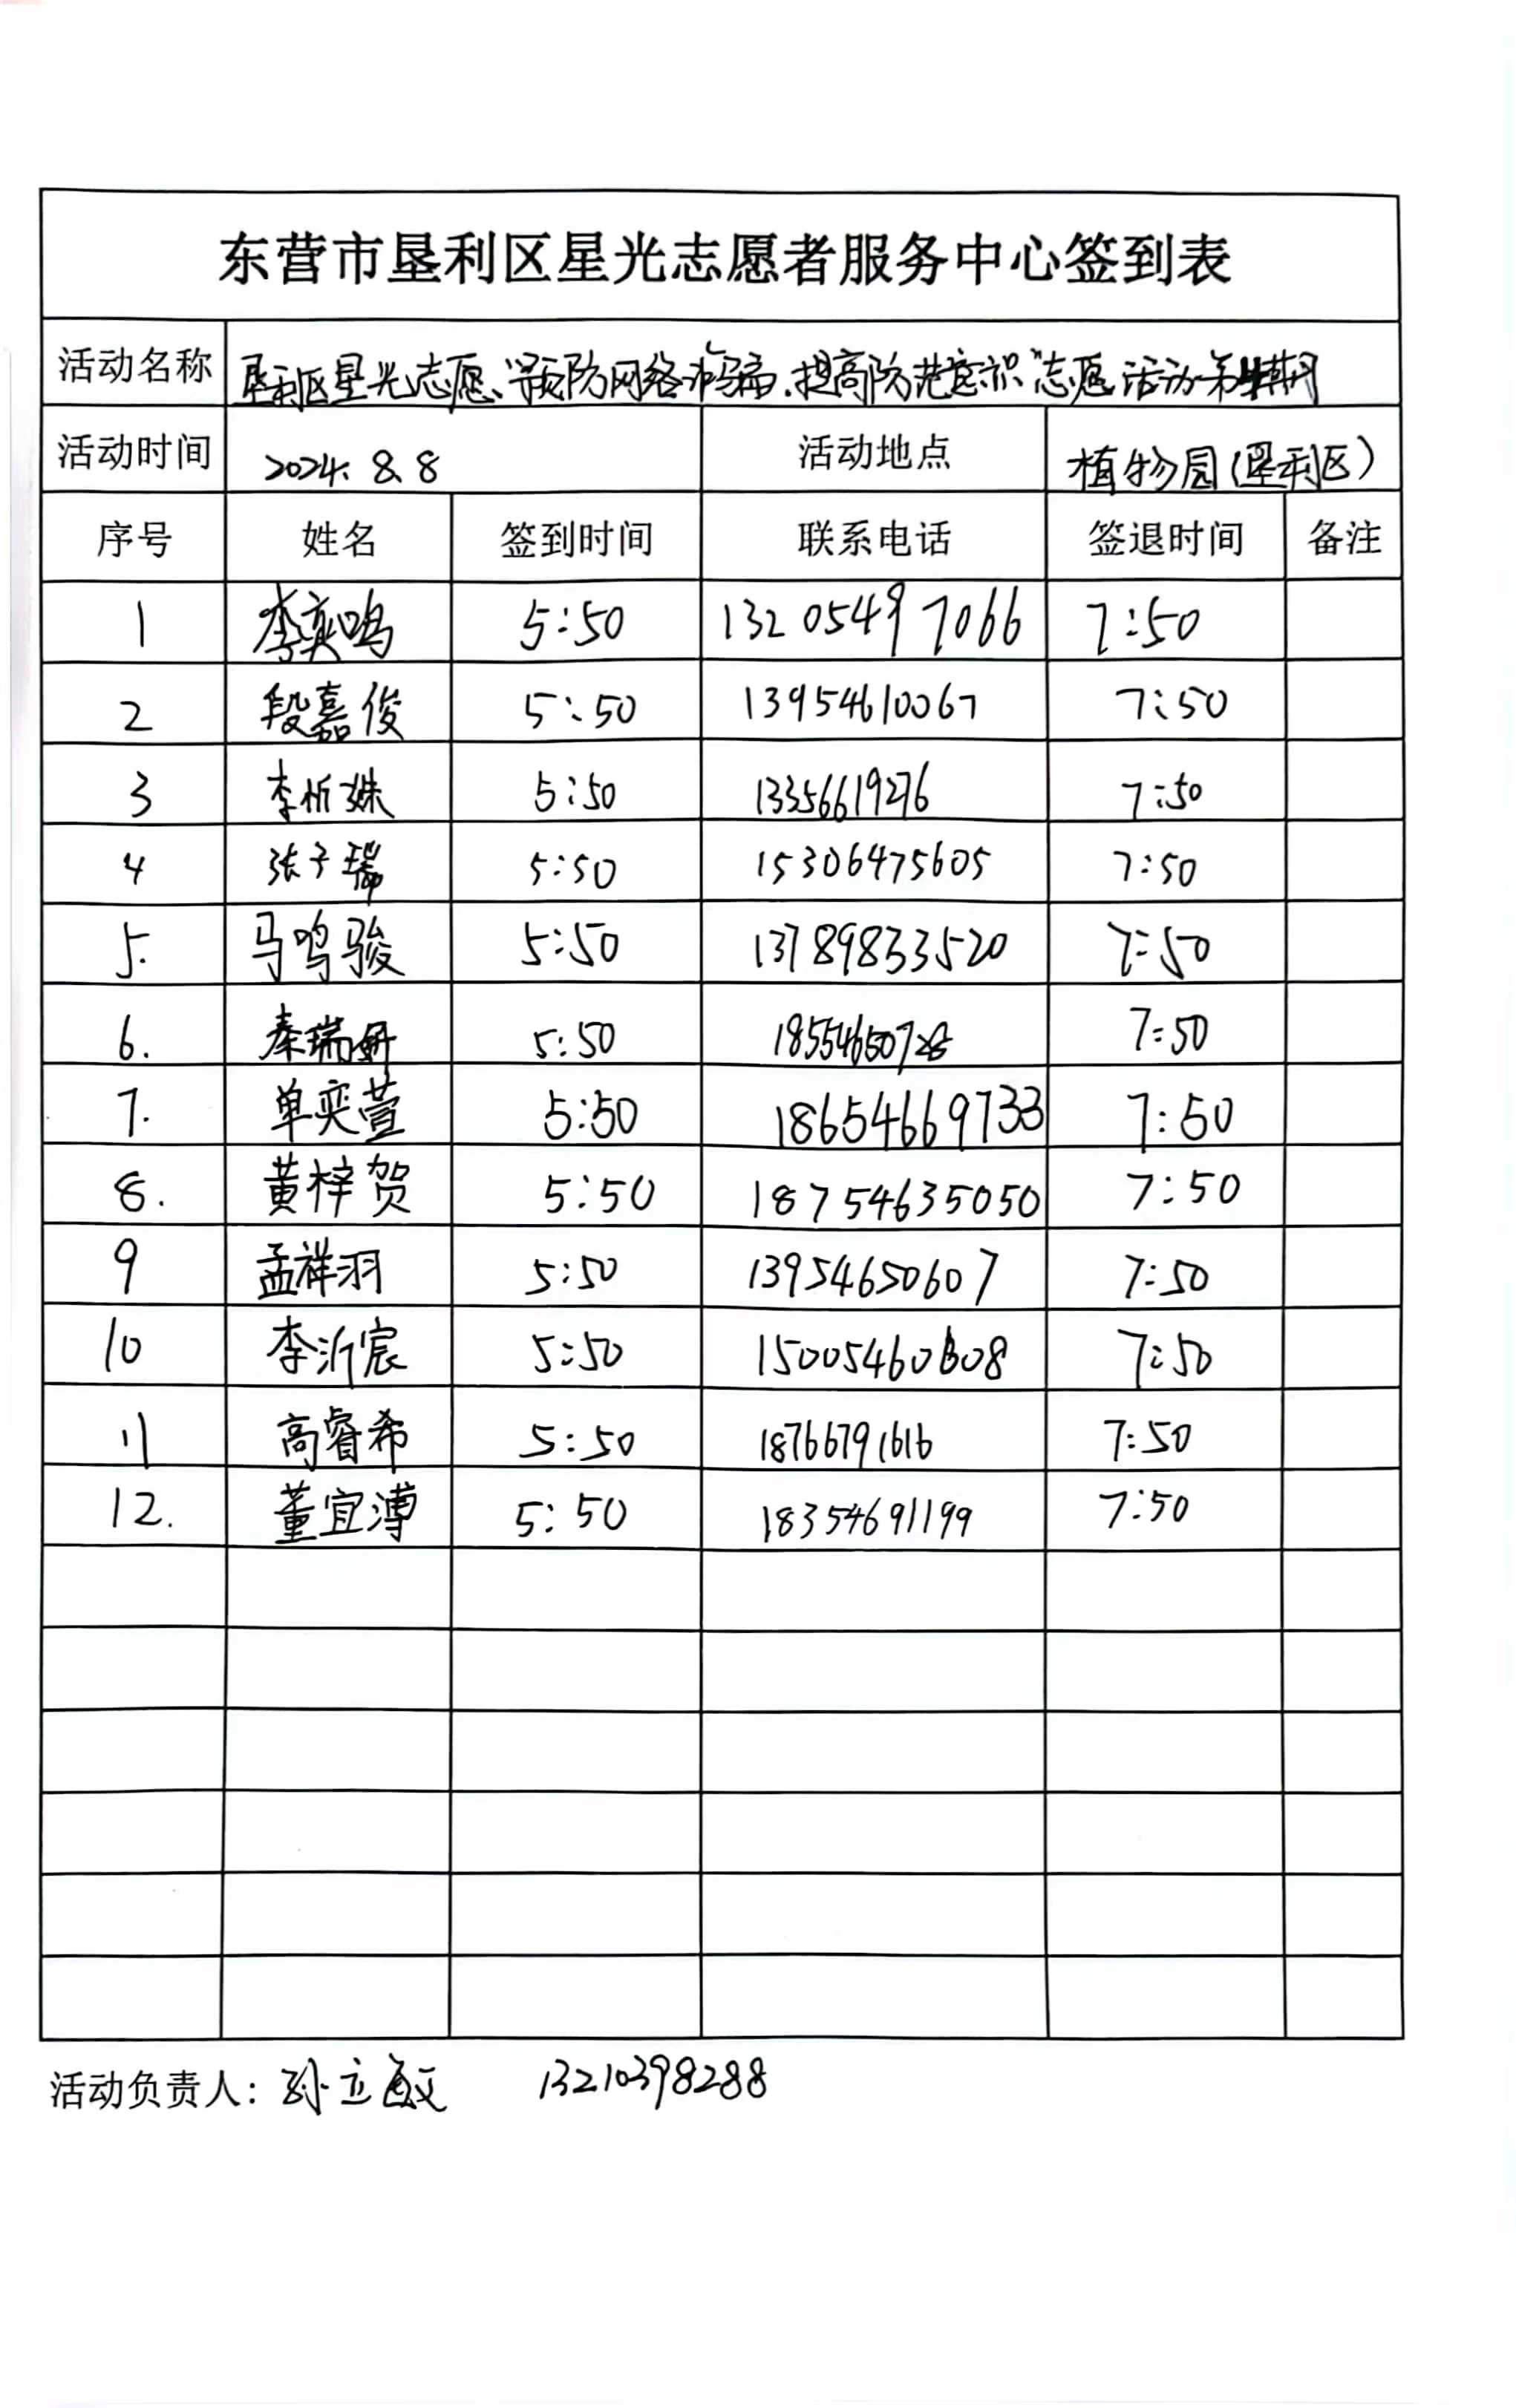 东营市垦利区星光志愿者服务中心签到表
活动名称 垦利区星光志愿、“预防网络诈骗、提高防范意识”志愿活动第期
活动时间 2024.8.8 活动地点 植物园(垦利区)
序号 姓名 签到时间 联系电话 签退时间 备注
1 李奕鸣 5:50 13205497066 7:50
2 段嘉俊 5:50 13954610067 7:50
3 李忻姝 5:50 13356619276 7:50
4 张子瑞 5:50 15306475605 7:50
5. 马鸣骏 5:50 13789833520 7:50
6. 秦瑞妍 5:50 7:50
7. 单奕萱 5:50 18654669733 7:50
8. 黄梓贺 5:50 18754635050 7:50
9 孟祥羽 5:50 13954650607 7:50
10 李沂宸 5:50 15005460608 7:50
11 高睿希 5:50 18766791616 7:50
12. 董宜溥 5:50 18354691199 7:50
活动负责人: 孙立敏 13210398288